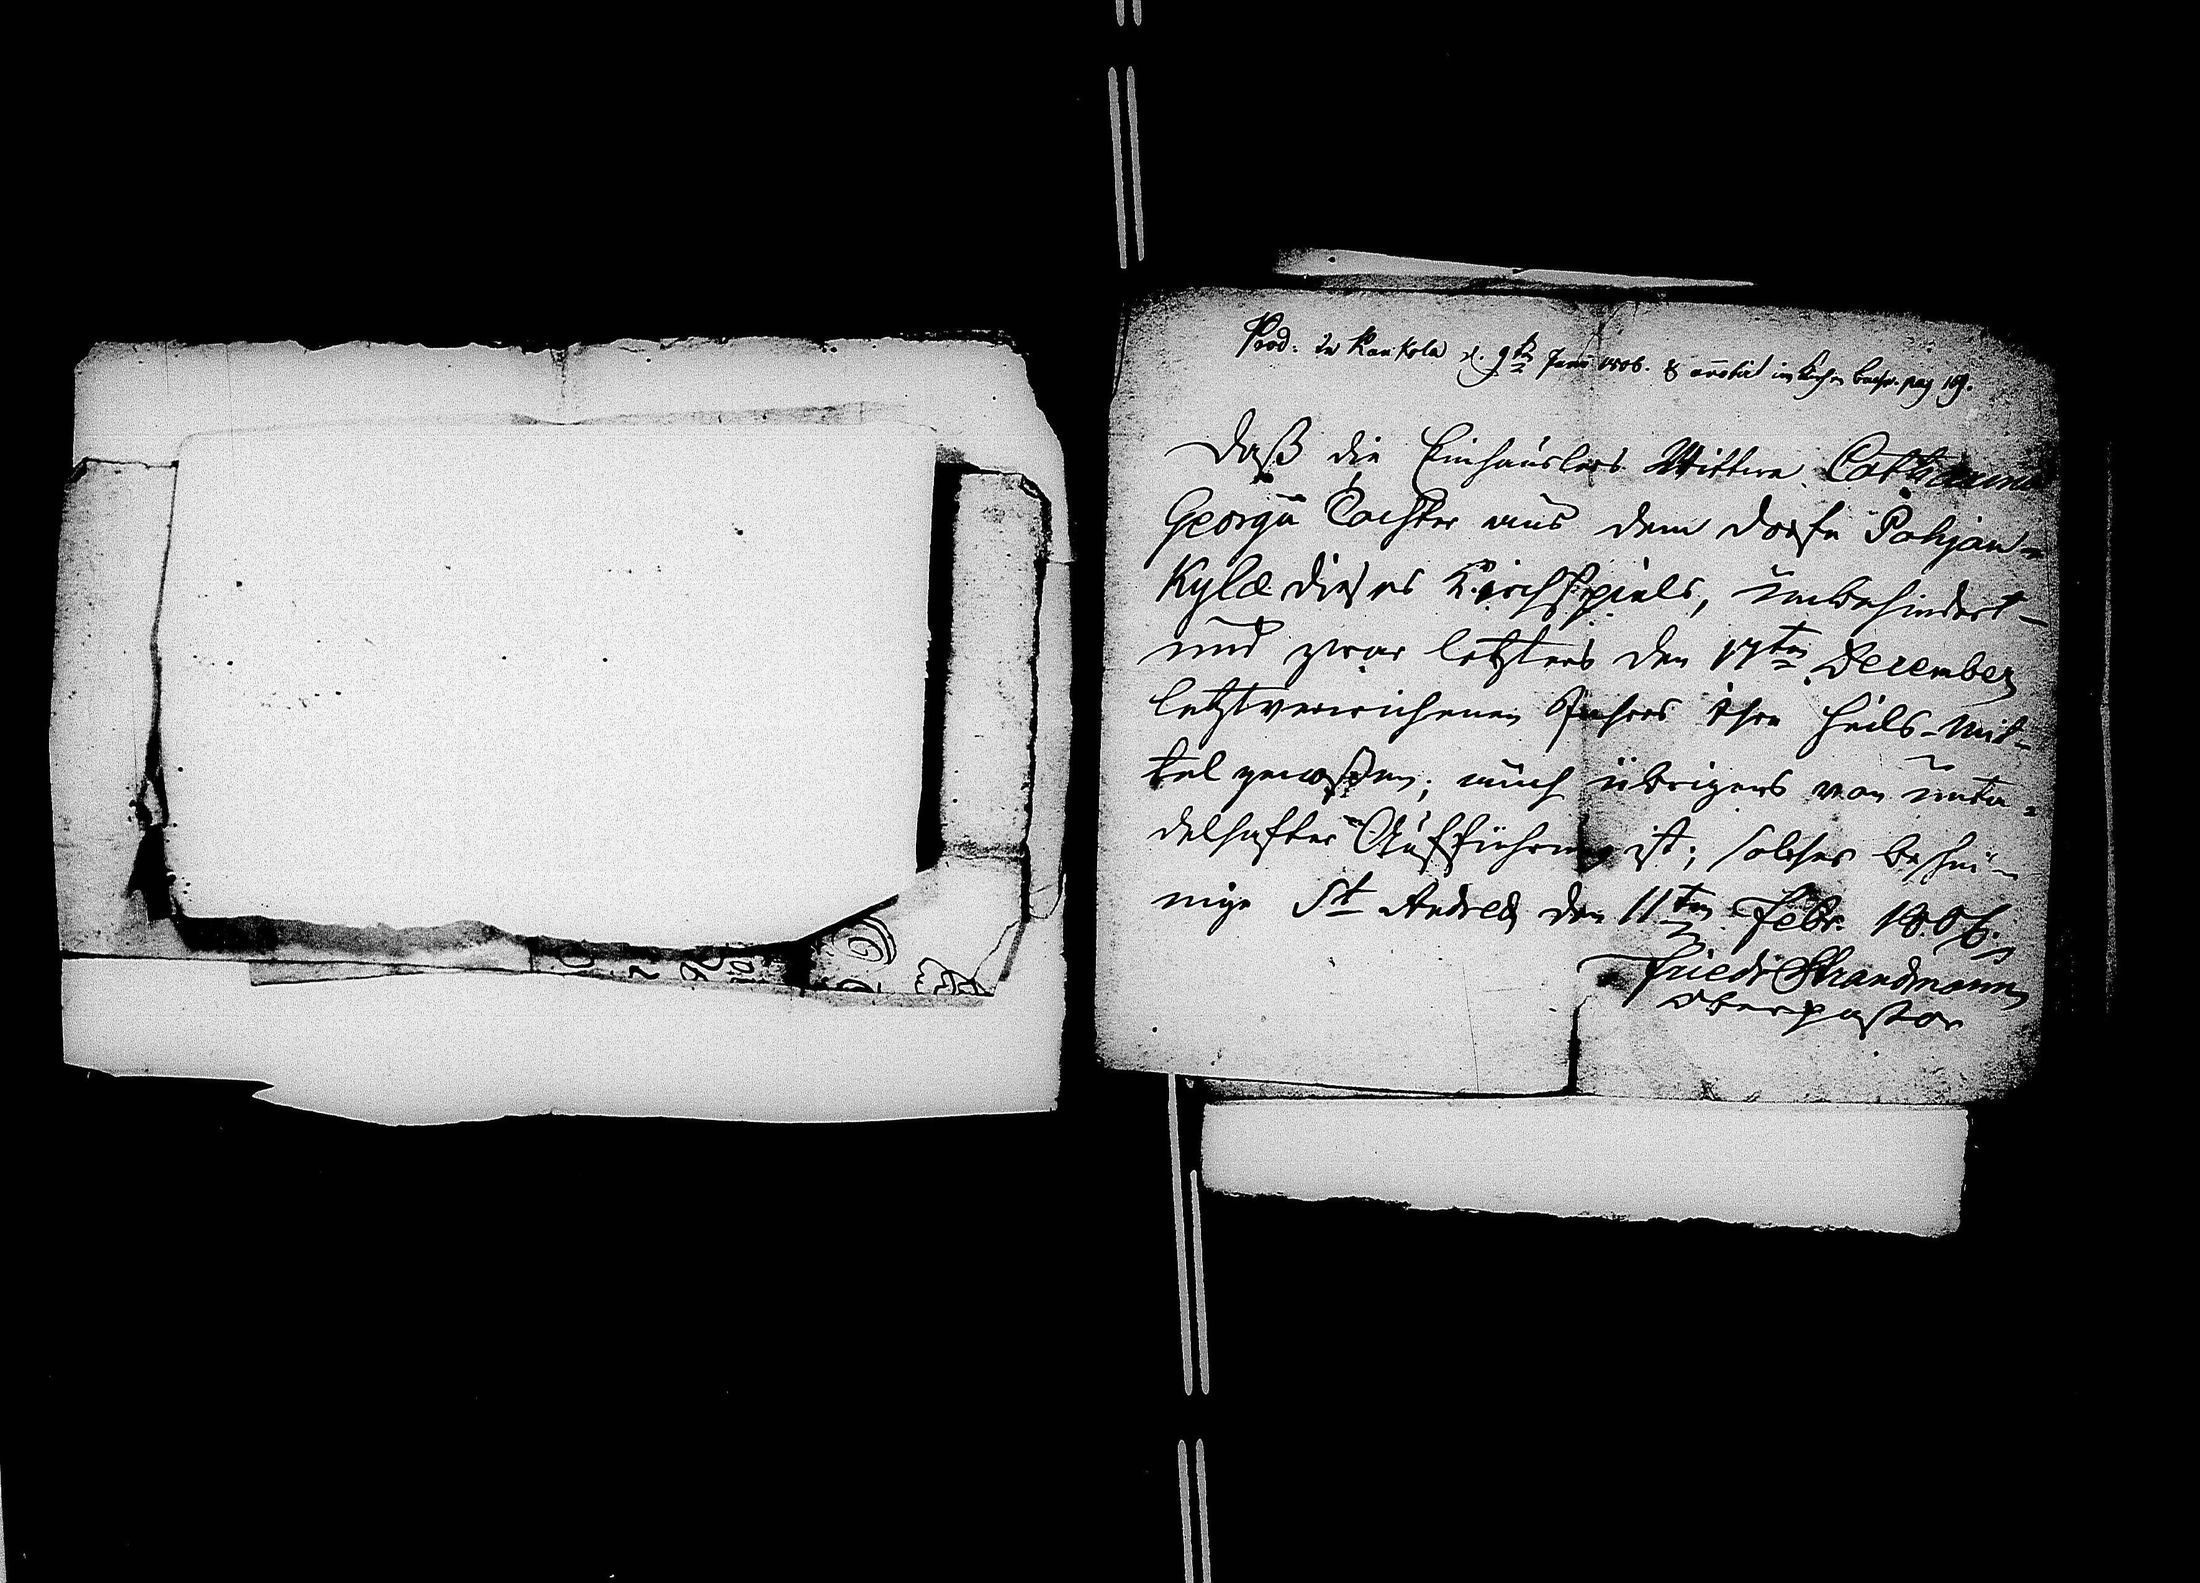 Prod. zu Kaukola d. 9ten Juni 1806. & notirt im Kirchen buche. pag 169.
Daß die Einhäuslers Wittwe Catharina
Georgii Tochter aus dem Dorfe Pohjan-
Kylæ dieses Kirchspiels, unbehindert
und zwar letztens den 17ten December
letztverwichenen Jahres ihre Heils-Mit-
tel genoßen; auch übrigens von unta-
delhafter Aufführung ist; solches beschei-
nige St Andreæ den 11ten Febr. 1806.
Friedr Strandmann
Oberpastor